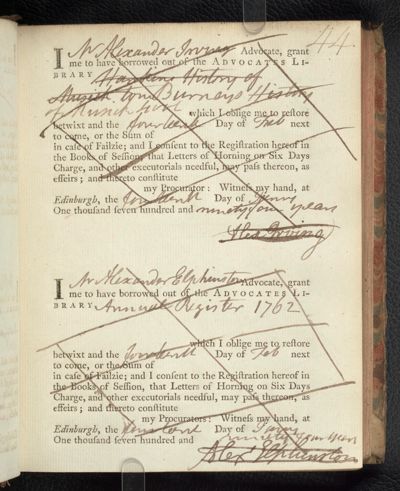 44
I Mr Alexander Irving Advocate, grant
me to have borrowed out of the ADVOCATES LI-
BRARY Hawkins History of
Musick two Burneys History
of Musick which I oblige me to restore
betwixt and the fourteenth Day of Feb next
to come, or the Sum of
in case of Failzie; and I consent to the Registration hereof in
the Books of Session, that Letters of Horning on Six Days
Charge, and other executorials needful, may pass thereon, as
effeirs; and thereto constitute
my Procurator: Witness my hand, at
Edinburgh, the fourteenth Day of Janry
One thousand seven hundred and ninety four years
Alexr Irving
I Mr Alexander Elphinston Advocate, grant
me to have borrowed out of the ADVOCATES LI-
BRARY Annual Register 1762
which I oblige me to restore
betwixt and the fourteenth Day of Feb next
to come, or the Sum of
in case of Failzie; and I consent to the Registration hereof in
the Books of Session, that Letters of Horning on Six Days
Charge, and other executorials needful, may pass thereon, as
effeirs; and thereto constitute
my Procurators: Witness my hand, at
Edinburgh, the fourteenth Day of Janry
One thousand seven hundred and ninety four years
Alexr Elphinston